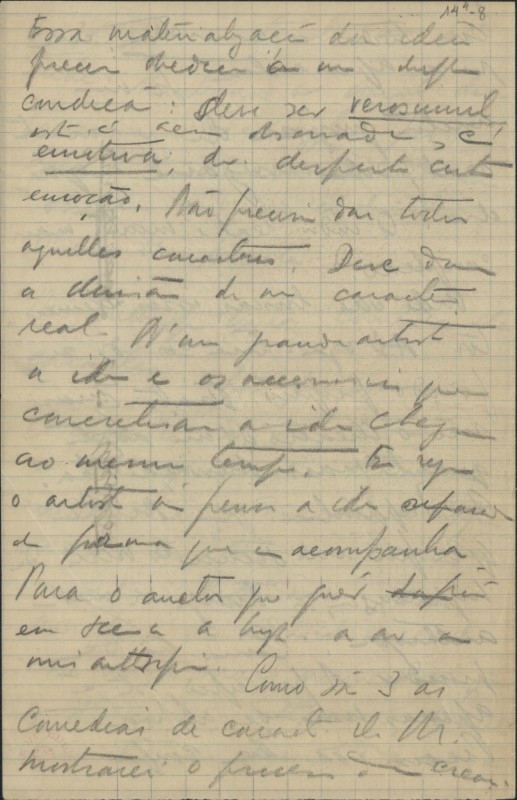 14ª-8
Essa materialização da ideia
precisa obedecer a uma dupla
condição: Deve ser verosimil,
isto é bem observada, e
emotiva, de despertar certa
emoção. Não precisa dar todos
aquelles caracteres. Deve dar
a illusão de um caracter
real. N'um grande artista
a ideia e os accessorios que
concretisam a ideia chegam
ao mesmo tempo. Em regra
o artista não pensa a ideia separada
da forma que a acompanha
Para o auctor que quer
em scena a a av
misanthropia. Como são 3 as
Comedias de caracter de M.
mostrarei o processo